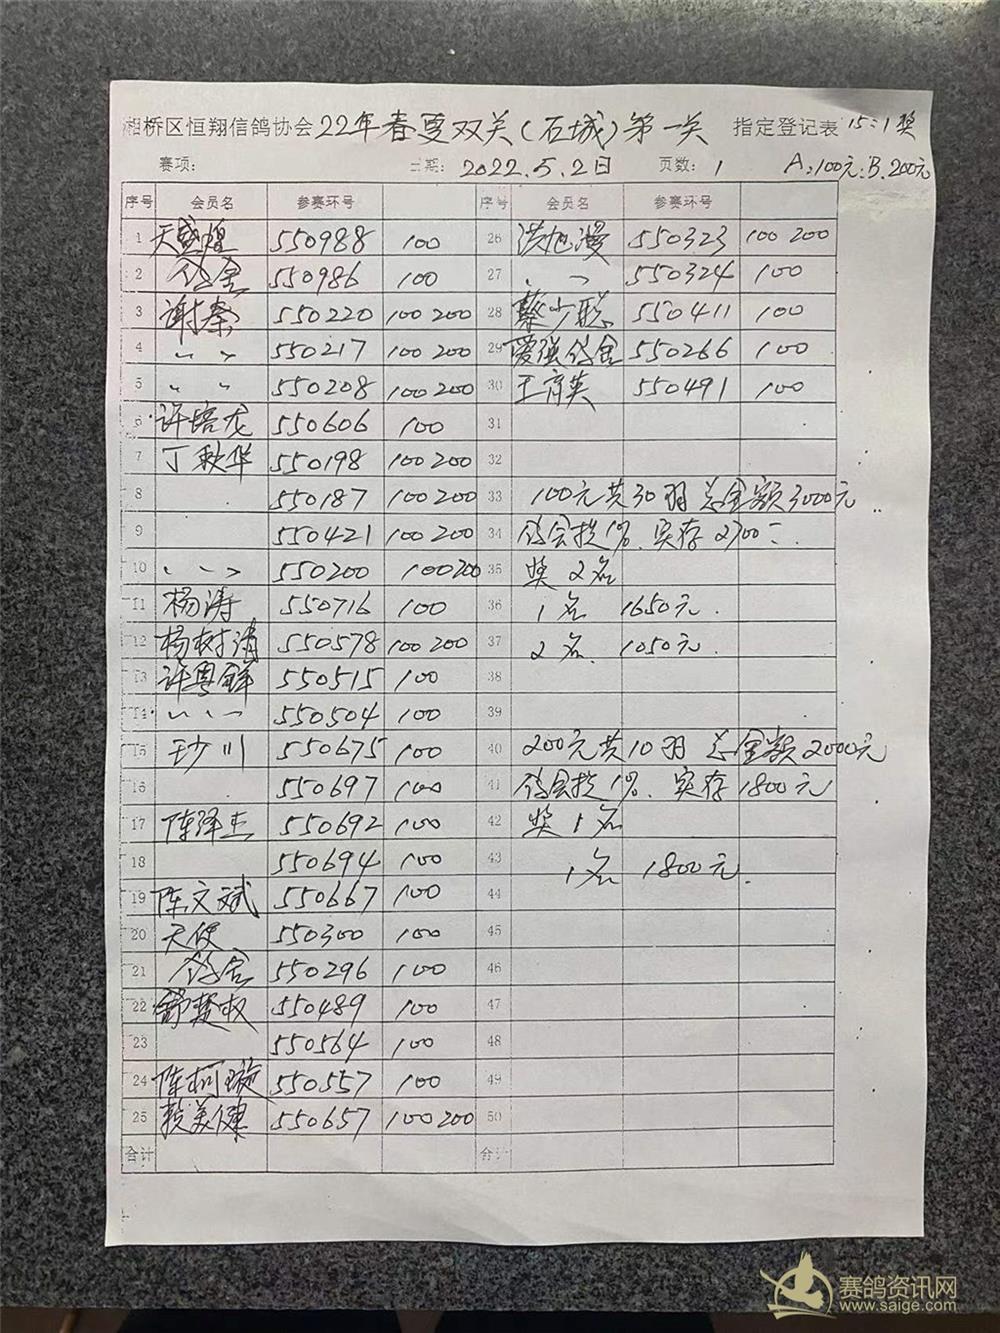 湘桥区恒翔信鸽协会22年春夏双关(石城)第一关 指定登记表 15:1奖
赛项: 日期: 2022.5.2日 页数: 1 A:100元:B.200元
序号 会员名 参赛环号 序号 会员名 参赛环号
1 天盛煌 550988 100 26 洪旭漫 550323 100 200
2 鸽舍 550986 100 27 〃 550324 100
3 谢泰 550220 100 200 28 蔡少聪 550411 100
4 〃 〃 550217 100 200 29 爱强鸽舍 550266 100
5 〃 〃 550208 100 200 30 王育英 550491 100
6 许培龙 550606 100 31
7 丁秋华 550198 100 200 32
8 550187 100 200 33 100元共30羽 总金额3000元
9 550421 100 200 34 实存2700
10 〃 〃 550200 100 200 35 奖2名
11 杨涛 550716 100 36 1名 1650元.
12 杨树清 550578 100 200 37 2名. 1050元.
13 许粤鲜 550515 100 38
14 〃 〃 550504 100 39
15 川 550675 100 40 200元共10羽 总金额2000元
16 550697 100 41 实存1800元
17 陈泽杰 550692 100 42 奖1名
18 550694 100 43 1名 1800元.
19 陈文斌 550667 100 44
20 天使 550300 100 45
21 鸽舍 550296 100 46
22 550489 100 47
23 550564 100 48
24 陈柯璇 550557 100 49
25 赖美健 550657 100 200 50
合计 合计
赛鸽资讯网
www.saige.com